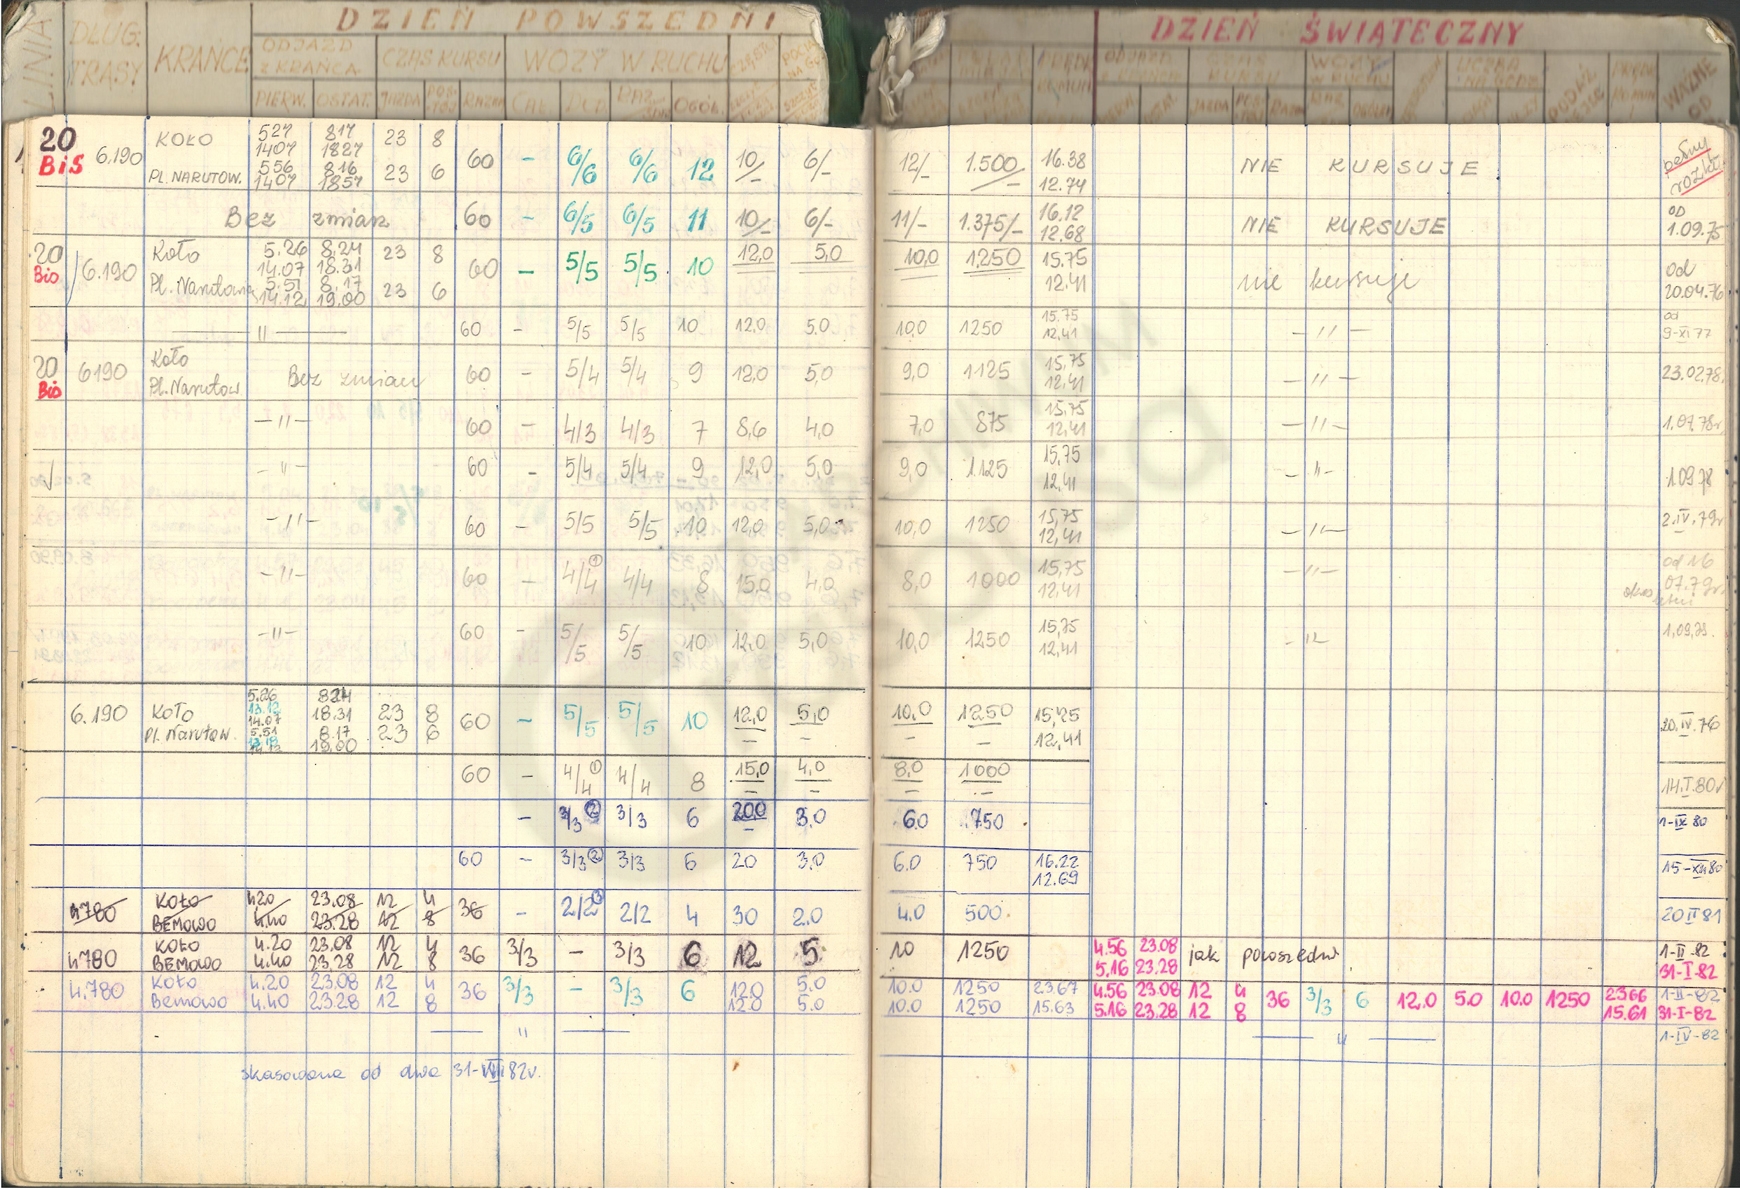 DZIEŃ POWSZEDNI DZIEŃ ŚWIĄTECZNY
LINIA DŁUG. TRASY KRAŃCE ODJAZD Z KRAŃCA CZAS KURSU WOZY W RUCHU
PIERW. OSTAT. JAZDA RAZEM OGÓŁ. WAŻNE OD
20 BiS 6.190 KOŁO 527 817 23 8 60 – 6/6 6/6 12 10/– 6/– 12/– 1.500/– 16.38 NIE KURSUJE pełny rozkł.
1407 1827 12.74
PL. NARUTOW. 556 816 23 6
1407 1857
Bez zmian 60 – 6/5 6/5 11 10/– 6/– 11/– 1.375/– 16.12 NIE KURSUJE od 1.09.75
12.68
20 Bis 6.190 Koło 5.26 8.24 23 8 60 – 5/5 5/5 10 12,0 5,0 10,0 1250 15.75 nie kursuje od 20.04.76
14.07 18.31 12.41
Pl. Narutowa 5.51 8.17 23 6
14.12 19.00
— 〃 — 60 – 5/5 5/5 10 12.0 5.0 10,0 1250 15.75 – 〃 – od 9-XI 77
12,41
20 Bis 6190 Koło Bez zmian 60 – 5/4 5/4 9 12,0 5,0 9,0 1125 15,75 – 〃 – 23.02.78
Pl. Narutow 12,41
– 〃 – 60 – 4/3 4/3 7 8,6 4,0 7,0 875 15,75 – 〃 – 1.07.78r
12,41
– 〃 – 60 – 5/4 5/4 9 12,0 5,0 9,0 1125 15,75 – 〃 – 1.09.78
12,41
– 〃 – 60 – 5/5 5/5 10 12,0 5,0 10,0 1250 15,75 – 〃 – 2.IV.79r
12,41
– 〃 – 60 – 4/4 ① 4/4 8 15,0 4,0 8,0 1000 15,75 – 〃 – od 16 07.79r
12,41
– 〃 – 60 – 5/5 5/5 10 12,0 5,0 10,0 1250 15,75 – 〃 – 1.09.79.
12,41
6.190 KOŁO 5.26 8.24 23 8 60 – 5/5 5/5 10 12,0 5,0 10,0 1250 15,75 20.IV.76
13.12
14.07 18.31 12,41
Pl. Narutow. 5.51 8.17 23 6
19.00
60 – 4/4 ① 4/4 8 15,0 4,0 8,0 1000 14.I.80r
– 3/3 ② 3/3 6 20,0 3,0 6.0 750 1-IX 80
60 – 3/3 ② 3/3 6 20 3.0 6.0 750 16.22 15-XII 80
12.69
4780 KOŁO 4.20 23.08 12 4 36 – 2/2 2/2 4 30 2.0 4.0 500 20 II 81
BEMOWO 4.40 23.28 12 8
4780 KOŁO 4.20 23.08 12 4 36 3/3 – 3/3 6 12 5 10 1250 4.56 23.08 jak powszedni 1-II-82
BEMOWO 4.40 23.28 12 8 5.16 23.28 31-I-82
4.780 KOŁO 4.20 23.08 12 4 36 3/3 – 3/3 6 12.0 5.0 10.0 1250 23.67 4.56 23.08 12 4 36 3/3 6 12.0 5.0 10.0 1250 23.66 1-II-82
Bemowo 4.40 23.28 12 8 12.0 5.0 10.0 1250 15.63 5.16 23.28 12 8 15.61 31-I-82
— 〃 — — 〃 — 1-IV-82
skasowana od dnia 31-VIII 82r.